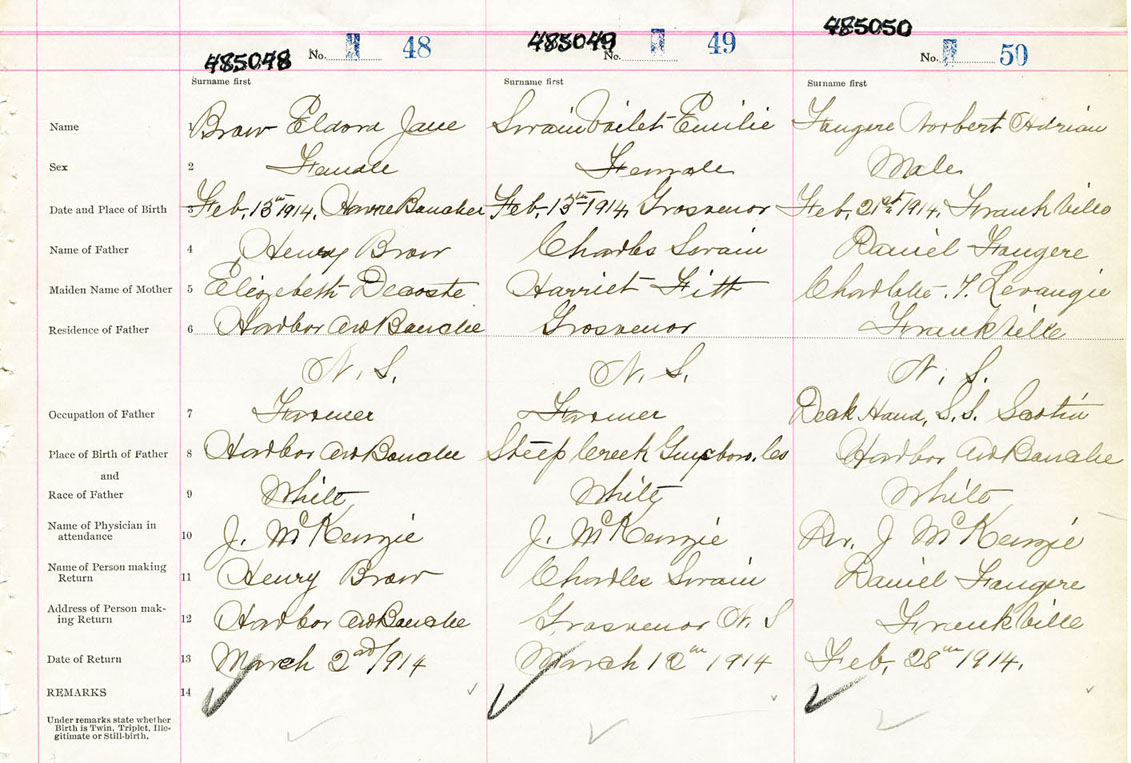 485048 No. 48 485049 No. 49 485050 No. 50
Surname first Surname first Surname first
Name 1 Brow Eldora Jane Swain Voilet Emilie Fougere Norbert Adrian
Sex 2 Female Female Male
Date and Place of Birth 3 Feb, 13th 1914, Havre Boucher Feb, 13th 1914, Grosvenor Feb, 21st 1914, Frankville
Name of Father 4 Henry Brow Charles Swain Daniel Fougere
Maiden Name of Mother 5 Elizebeth Decoste Harriet Fitt Levangie
Residence of Father 6 Harbor Au Bouche Grosvenor Frankville
N. S. N. S. N. S.
Occupation of Father 7 Farmer Farmer Deck Hand, S.S. Scotia
Place of Birth of Father 8 Harbor Au Bouche Steep Creek Guysboro, Co Harbor Au Bouche
and
Race of Father 9 White White White
Name of Physician in
attendance 10 J. McKenzie J. McKenzie Dr. J McKenzie
Name of Person making
Return 11 Henry Brow Charles Swain Daniel Fougere
Address of Person mak-
ing Return 12 Harbor Au Bouche Grosvenor N. S Frankville
Date of Return 13 March 2nd/1914 March 1914 Feb, 28th 1914.
REMARKS 14
Under remarks state whether
Birth is Twin, Triplet, Ille-
gitimate or Still-birth.